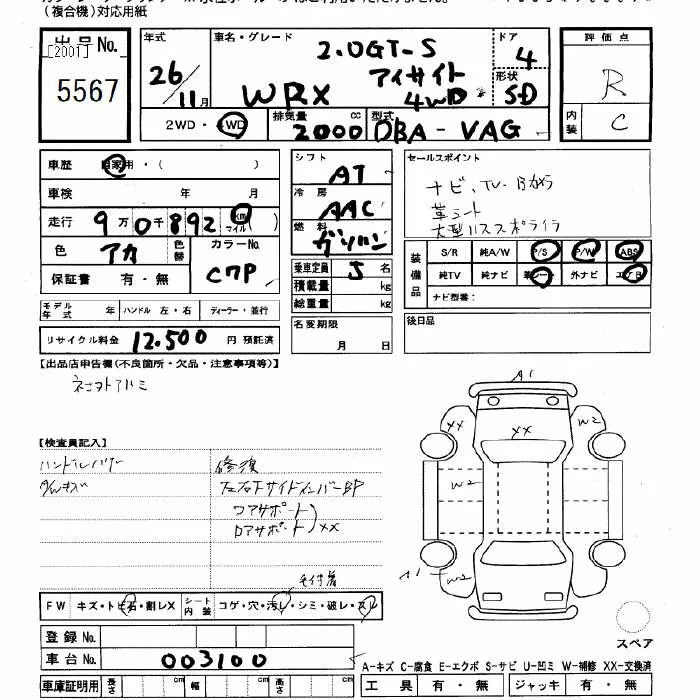 (複合機)対応用紙
出品No.
[2001]
5567
年式
26/11月
車名・グレード
2.0GT-S
アイサイト
WRX 4WD
ドア
4
形状
SD
評価点
R
内装
C
2WD・4WD
排気量
2000 cc
型式
DBA-VAG
車歴 自家用・( )
車検 年 月
走行 9万0千892 km マイル
色 アカ 色替 カラーNo. C7P
保証書 有・無
シフト
AT
冷房
AAC
燃料
ガソリン
乗車定員 5 名
積載量 kg
総重量 kg
セールスポイント
ナビ、TV・Bカメラ
革シート
大型リヤスポイラー
装備品
S/R 純A/W P/S P/W ABS
純TV 純ナビ 革シート 外ナビ エアB
ナビ型番:
モデル年式 年 ハンドル 左・右 ディーラー・並行
リサイクル料金 12.500 円 預託済
名変期限
月 日
後日品
【出品店申告欄(不良箇所・欠品・注意事項等)】
【検査員記入】
修復
コアサポート
ロアサポート XX
A1
XX
W2
XX
W2
A1
W2
FW キズ・トビ石・割レX シート内装 コゲ・穴・汚レ・シミ・破レ・スレ
登録No.
車台No. 003100
車庫証明用 長さ cm 幅 cm 高さ cm
スペア
A-キズ C-腐食 E-エクボ S-サビ U-凹ミ W-補修 XX-交換済
工具 有・無 ジャッキ 有・無